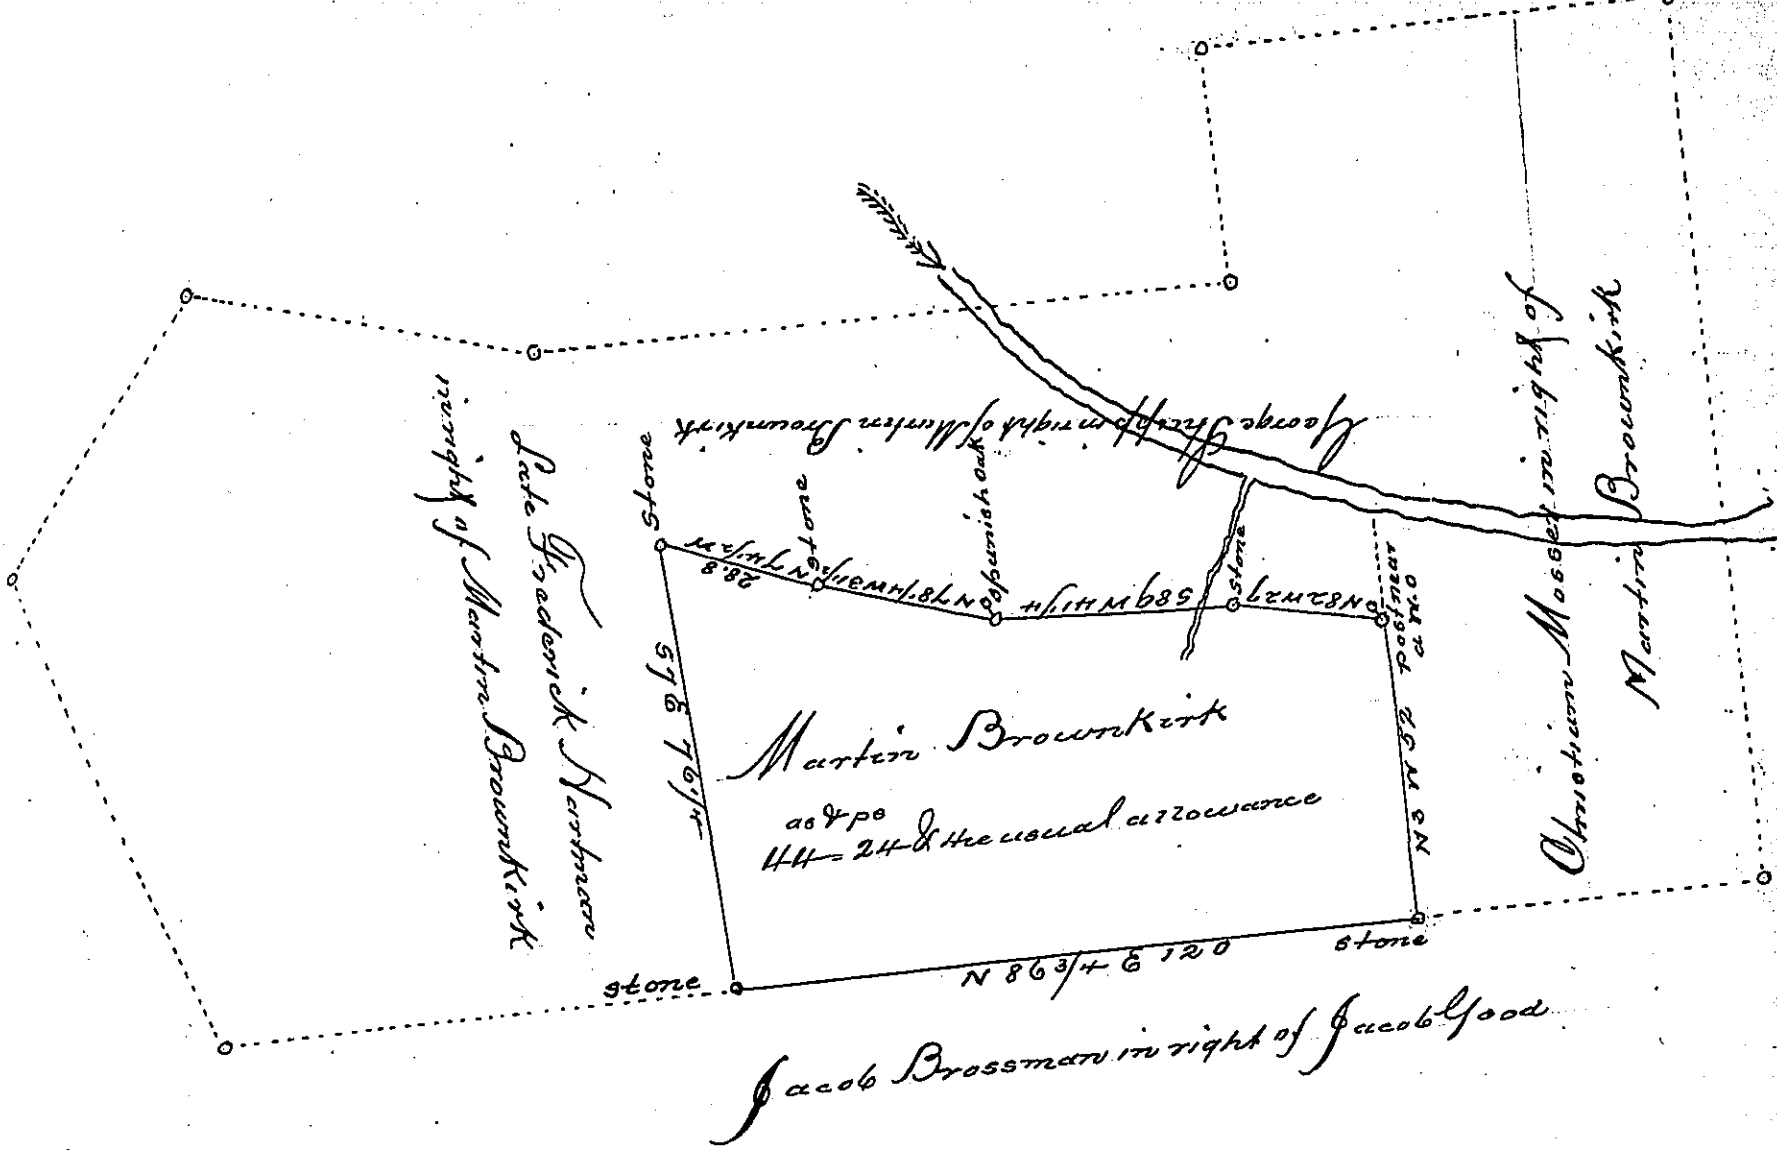 George Shupp in right of Martin Brownkirk
Late Frederick Hartman
in right of Martin Brownkirk
Christian Mosser in right of
Martin Brownkirk
Stone
N 74 1/2 W
28.8
stone
N 78 1/4 W 31 1/2
Spanish Oak
S 89 W 41 1/4
stone
N 82 W 27
post near
a W.O
S 7 E 76 1/4
N 3 W 52
Martin Brownkirk
as & ps
44 = 24 & the usual allowance
stone
N 86 3/4 E 120
stone
Jacob Brossman in right of Jacob Good